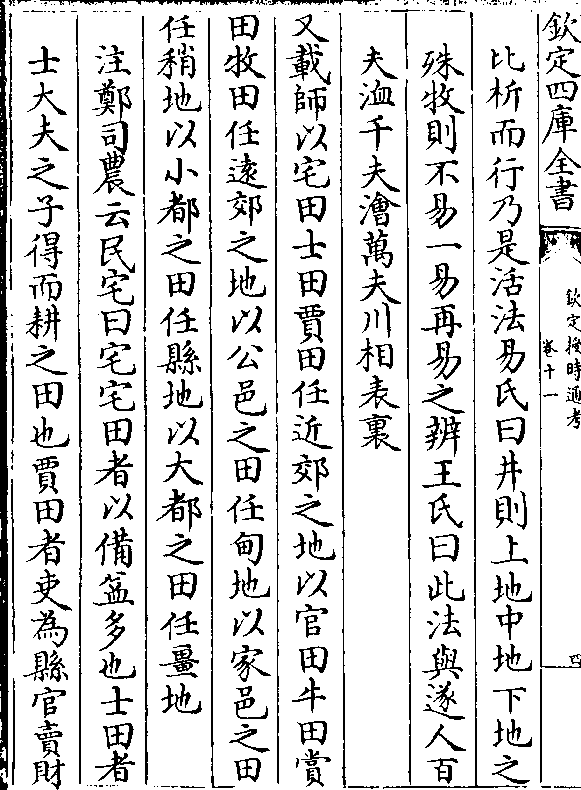 欽定四庫全書
欽定授時通考
卷十一
四
比析而行乃是活法易氏曰井則上地中地下地之
殊牧則不易一易再易之辨王氏曰此法與遂人百
夫洫千夫澮萬夫川相表裏
又載師以宅田士田賈田任近郊之地以官田牛田賞
田牧田任遠郊之地以公邑之田任甸地以家邑之田
任稍地以小都之田任縣地以大都之田任畺地
注鄭司農云民宅曰宅宅田者以備益多也士田者
士大夫之子得而耕之田也賈田者吏為縣官賣財